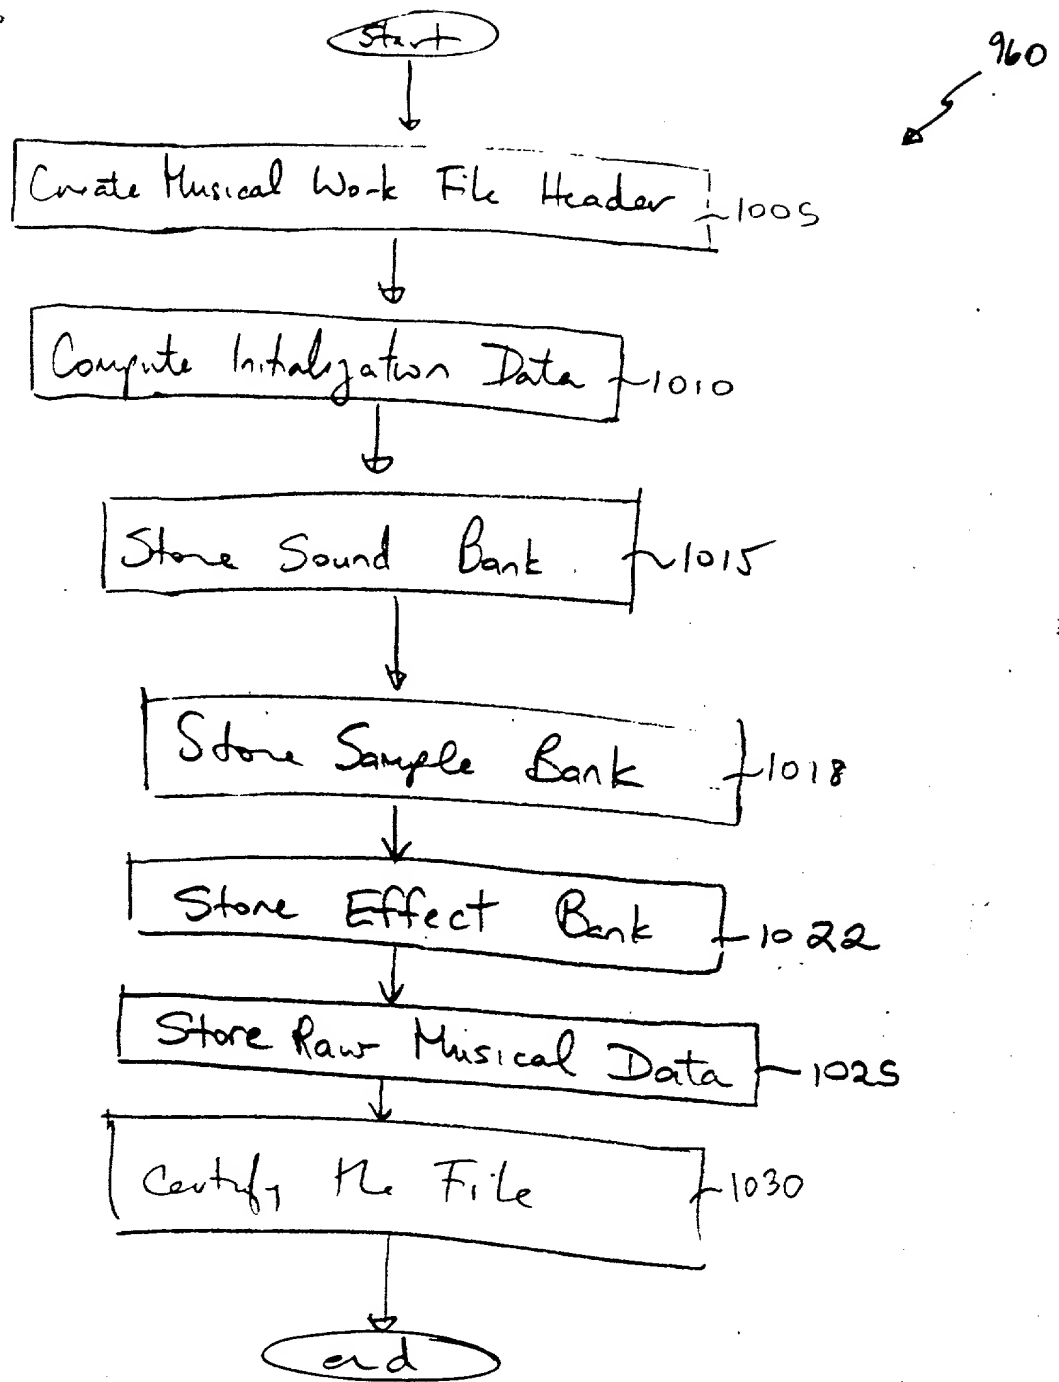 Start
960
Create Musical Work File Header 1005
Compute Initialization Data 1010
Store Sound Bank 1015
Store Sample Bank 1018
Store Effect Bank 1022
Store Raw Musical Data 1025
Certify the File 1030
end